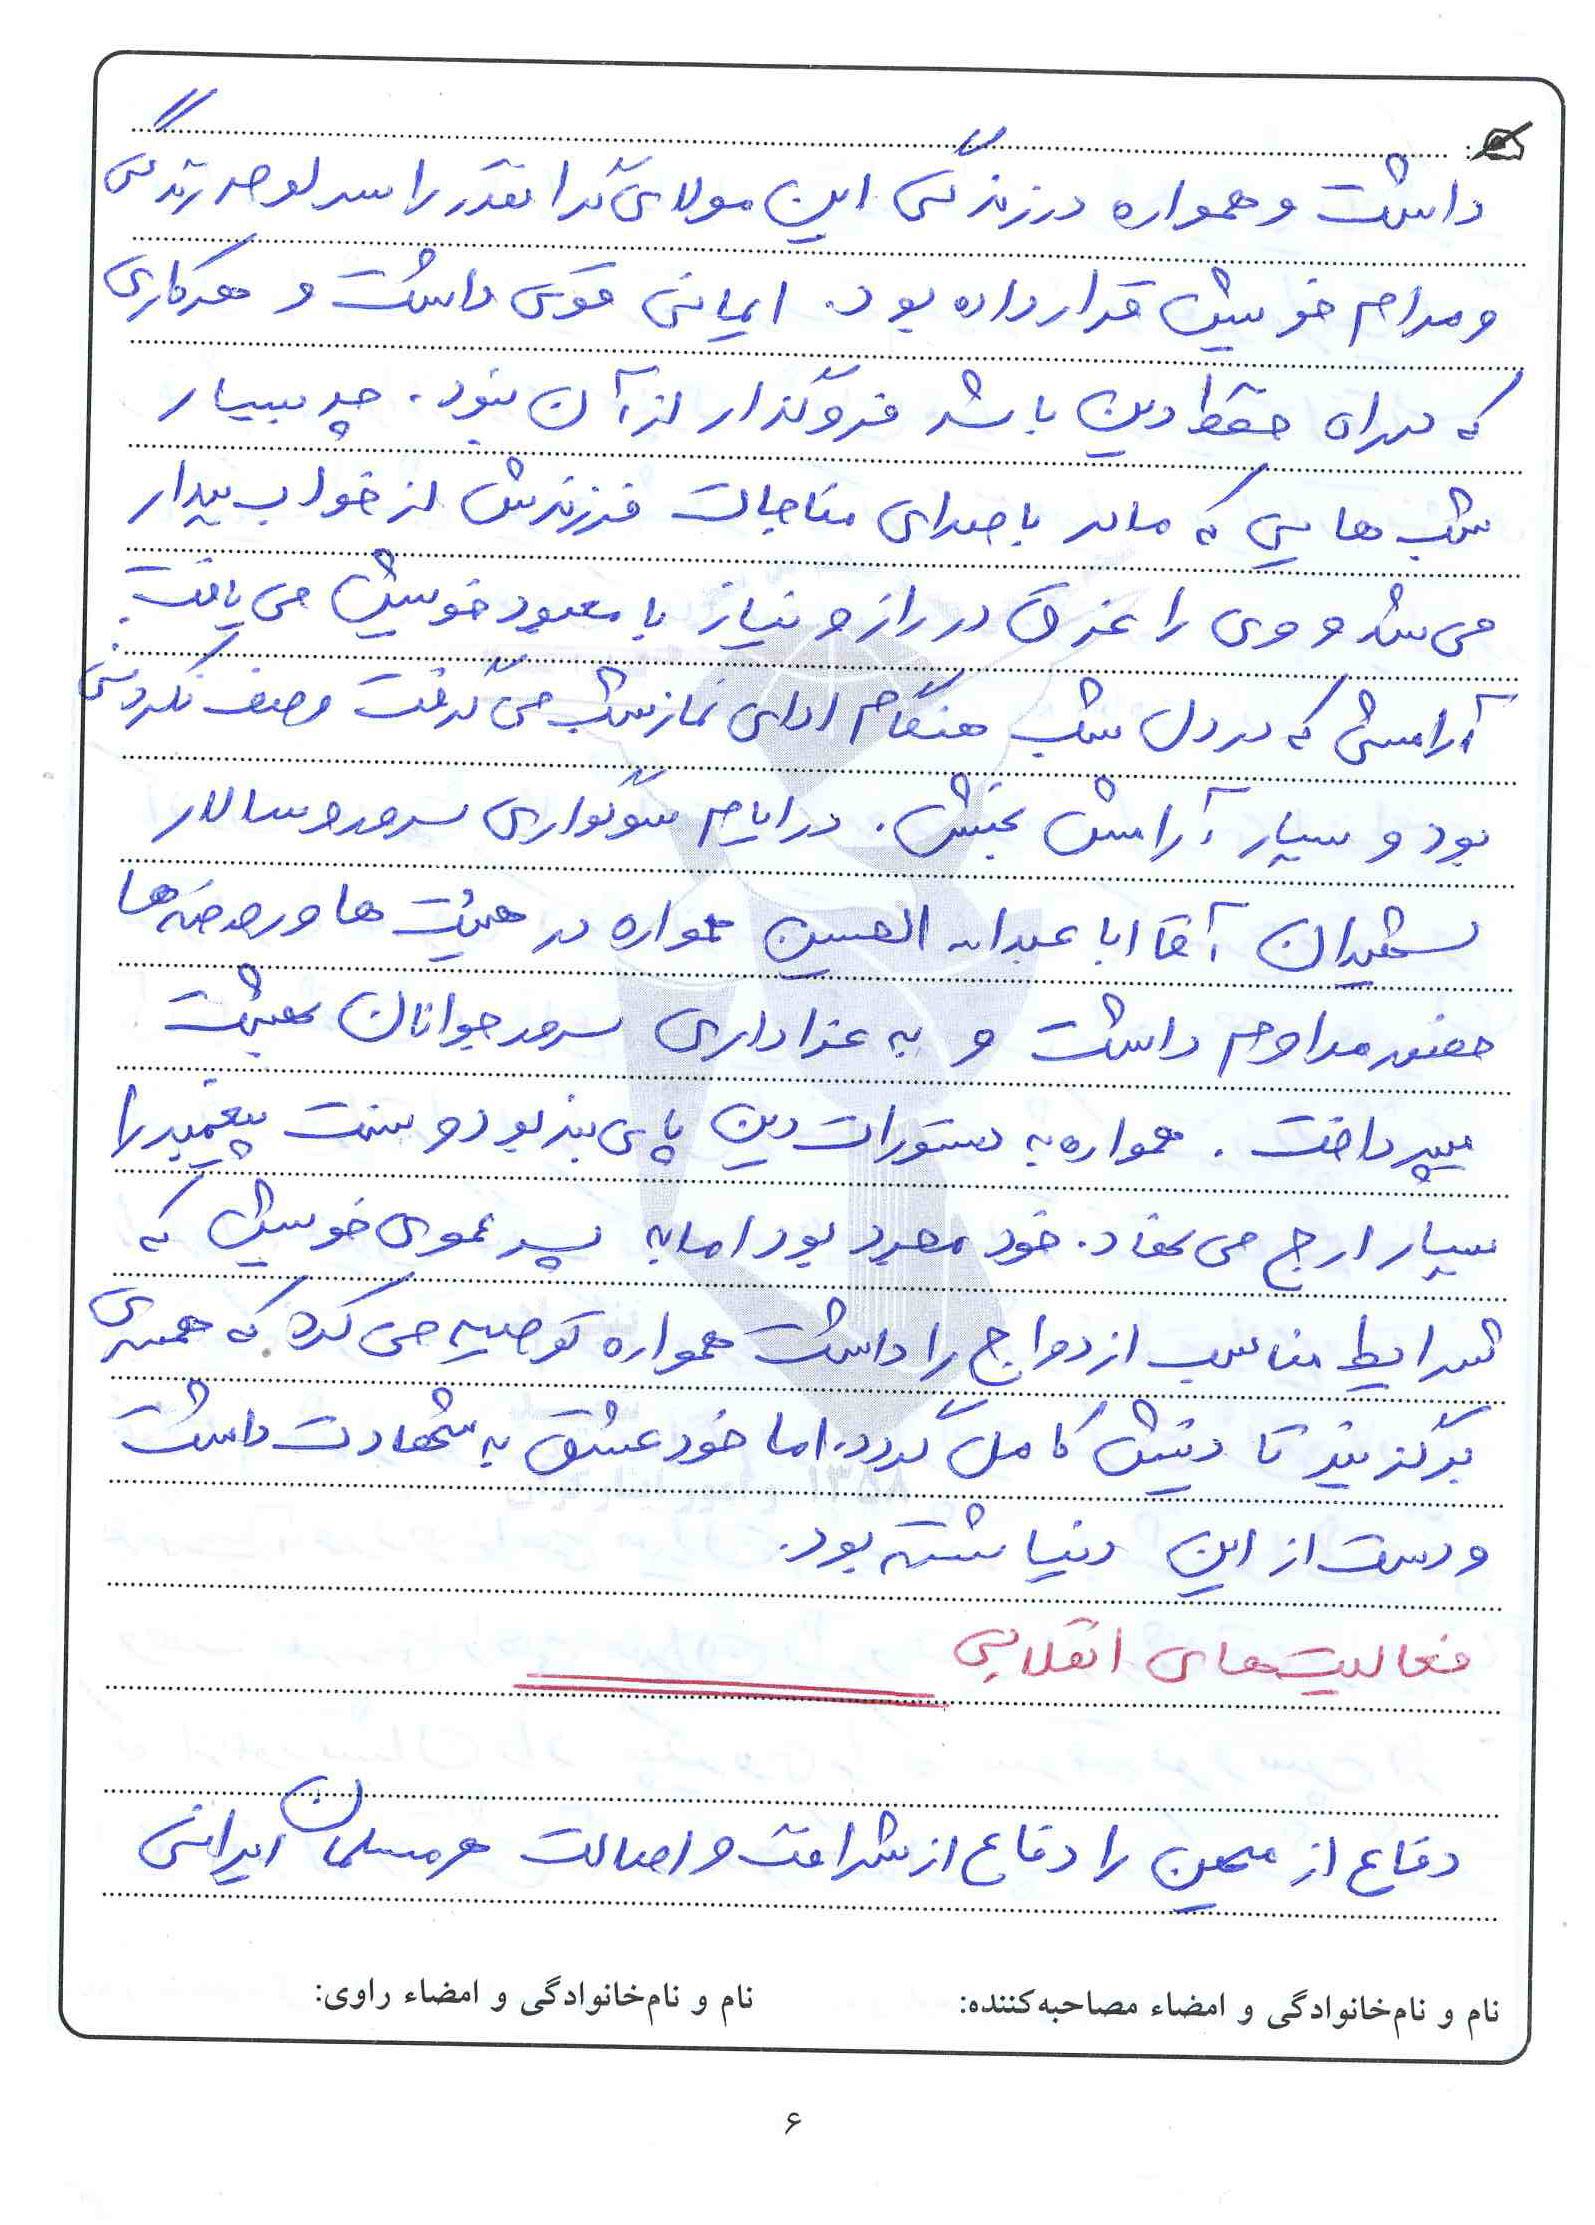 داشت و همواره در زندگی این مولای گرانقدر را سرلوحه زندگی
و مرام خویش قرار داده بود. ایمانی قوی داشت و هرکاری
که برای حفظ دین باشد فروگذار از آن نبود. چه بسیار
شب هایی که مادر با صدای مناجات فرزندش از خواب بیدار
می شد و وی را غرق در راز و نیاز با معبود خویش می یافت.
آرامشی که در دل شب هنگام ادای نماز شب می گرفت وصف نکردنی
بود و بسیار آرامش بخش. در ایام سوگواری سرور و سالار
شهیدان آقا ابا عبداله الحسین همواره در هیئت ها و روضه ها
حضور مداوم داشت و به عزاداری سرور جوانان بهشت
میپرداخت. همواره به دستورات دین پای بند بود و سنت پیغمبر را
بسیار ارج می نهاد. خود مجرد بود اما به پسر عموی خویش که
شرایط مناسب ازدواج را داشت همواره توصیه می کرد که همسری
برگزیند تا دینش کامل گردد. اما خود عشق به شهادت داشت
و دست از این دنیا شسته بود.
فعالیت های انقلابی
دفاع از میهن را دفاع از شرافت و اصالت هر مسلمان ایرانی
نام و نام‌خانوادگی و امضاء مصاحبه‌کننده: نام و نام‌خانوادگی و امضاء راوی:
۶